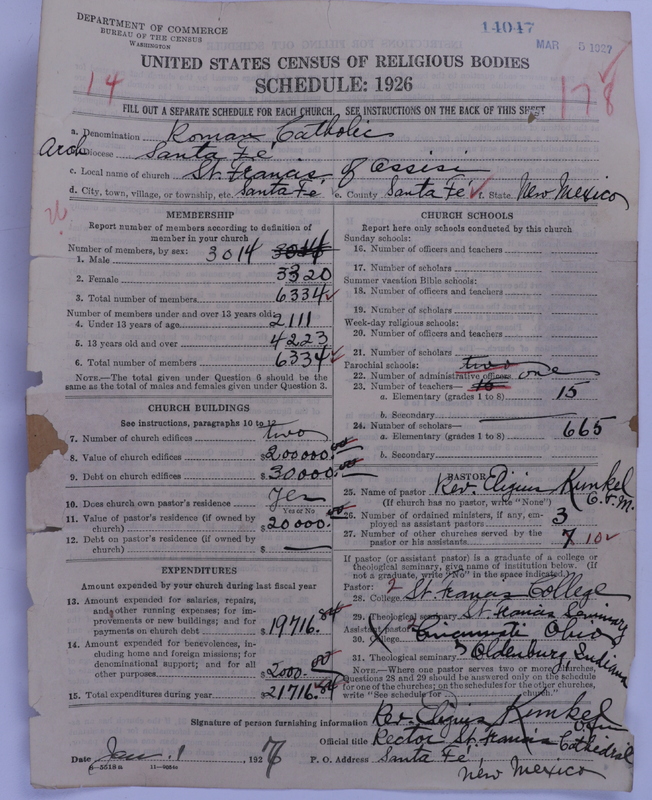 DEPARTMENT OF COMMERCE
BUREAU OF THE CENSUS
WASHINGTON
14047
MAR 5 1927
UNITED STATES CENSUS OF RELIGIOUS BODIES
SCHEDULE: 1926
14
178
FILL OUT A SEPARATE SCHEDULE FOR EACH CHURCH. SEE INSTRUCTIONS ON THE BACK OF THIS SHEET
a. Denomination Roman Catholic
Arch Diocese Santa Fé
c. Local name of church St. Francis of Assisi
d. City, town, village, or township, etc. Santa Fe e. County Santa Fé f. State New Mexico
MEMBERSHIP
Report number of members according to definition of
member in your church
Number of members, by sex:
1. Male 3014 3014
2. Female 3320
3. Total number of members 6334
Number of members under and over 13 years old:
4. Under 13 years of age 2111
5. 13 years old and over 4223
6. Total number of members 6334
NOTE.—The total given under Question 6 should be
the same as the total of males and females given under Question 3.
CHURCH BUILDINGS
See instructions, paragraphs 10 to 12
7. Number of church edifices two
8. Value of church edifices $200000.00
9. Debt on church edifices $30000.00
10. Does church own pastor's residence Yes
Yes or No
11. Value of pastor's residence (if owned by
church) $20000.00
12. Debt on pastor's residence (if owned by
church) $
EXPENDITURES
Amount expended by your church during last fiscal year
13. Amount expended for salaries, repairs,
and other running expenses; for im-
provements or new buildings; and for
payments on church debt $19716.84
14. Amount expended for benevolences, in-
cluding home and foreign missions; for
denominational support; and for all
other purposes $2000.00
15. Total expenditures during year $21716.84
CHURCH SCHOOLS
Report here only schools conducted by this church
Sunday schools:
16. Number of officers and teachers
17. Number of scholars
Summer vacation Bible schools:
18. Number of officers and teachers
19. Number of scholars
Week-day religious schools:
20. Number of officers and teachers
21. Number of scholars
Parochial schools: two
22. Number of administrative officers one
23. Number of teachers— 15
a. Elementary (grades 1 to 8) 15
b. Secondary
24. Number of scholars—
a. Elementary (grades 1 to 8) 665
b. Secondary
PASTOR
25. Name of pastor Rev. Eligius Kunkel O.F.M.
(If church has no pastor, write "None")
26. Number of ordained ministers, if any, em-
ployed as assistant pastors 3
27. Number of other churches served by the
pastor or his assistants 7 10
If pastor (or assistant pastor) is a graduate of a college or
theological seminary, give name of institution below. (If
not a graduate, write "No" in the space indicated)
Pastor: 2
28. College St. Francis College
29. Theological seminary St. Francis Seminary
Assistant pastor:
30. College Cincinnati Ohio
31. Theological seminary Oldenburg, Indiana
NOTE.—Where one pastor serves two or more churches,
Questions 28 and 29 should be answered only on the schedule
for one of the churches; on the schedules for the other churches,
write "See schedule for church."
Signature of person furnishing information Rev. Eligius Kunkel
Official title Rector St. Francis Cathedral
Date Jan. 1 1927 P. O. Address Santa Fé,
New Mexico
8-3518a 11-9054a